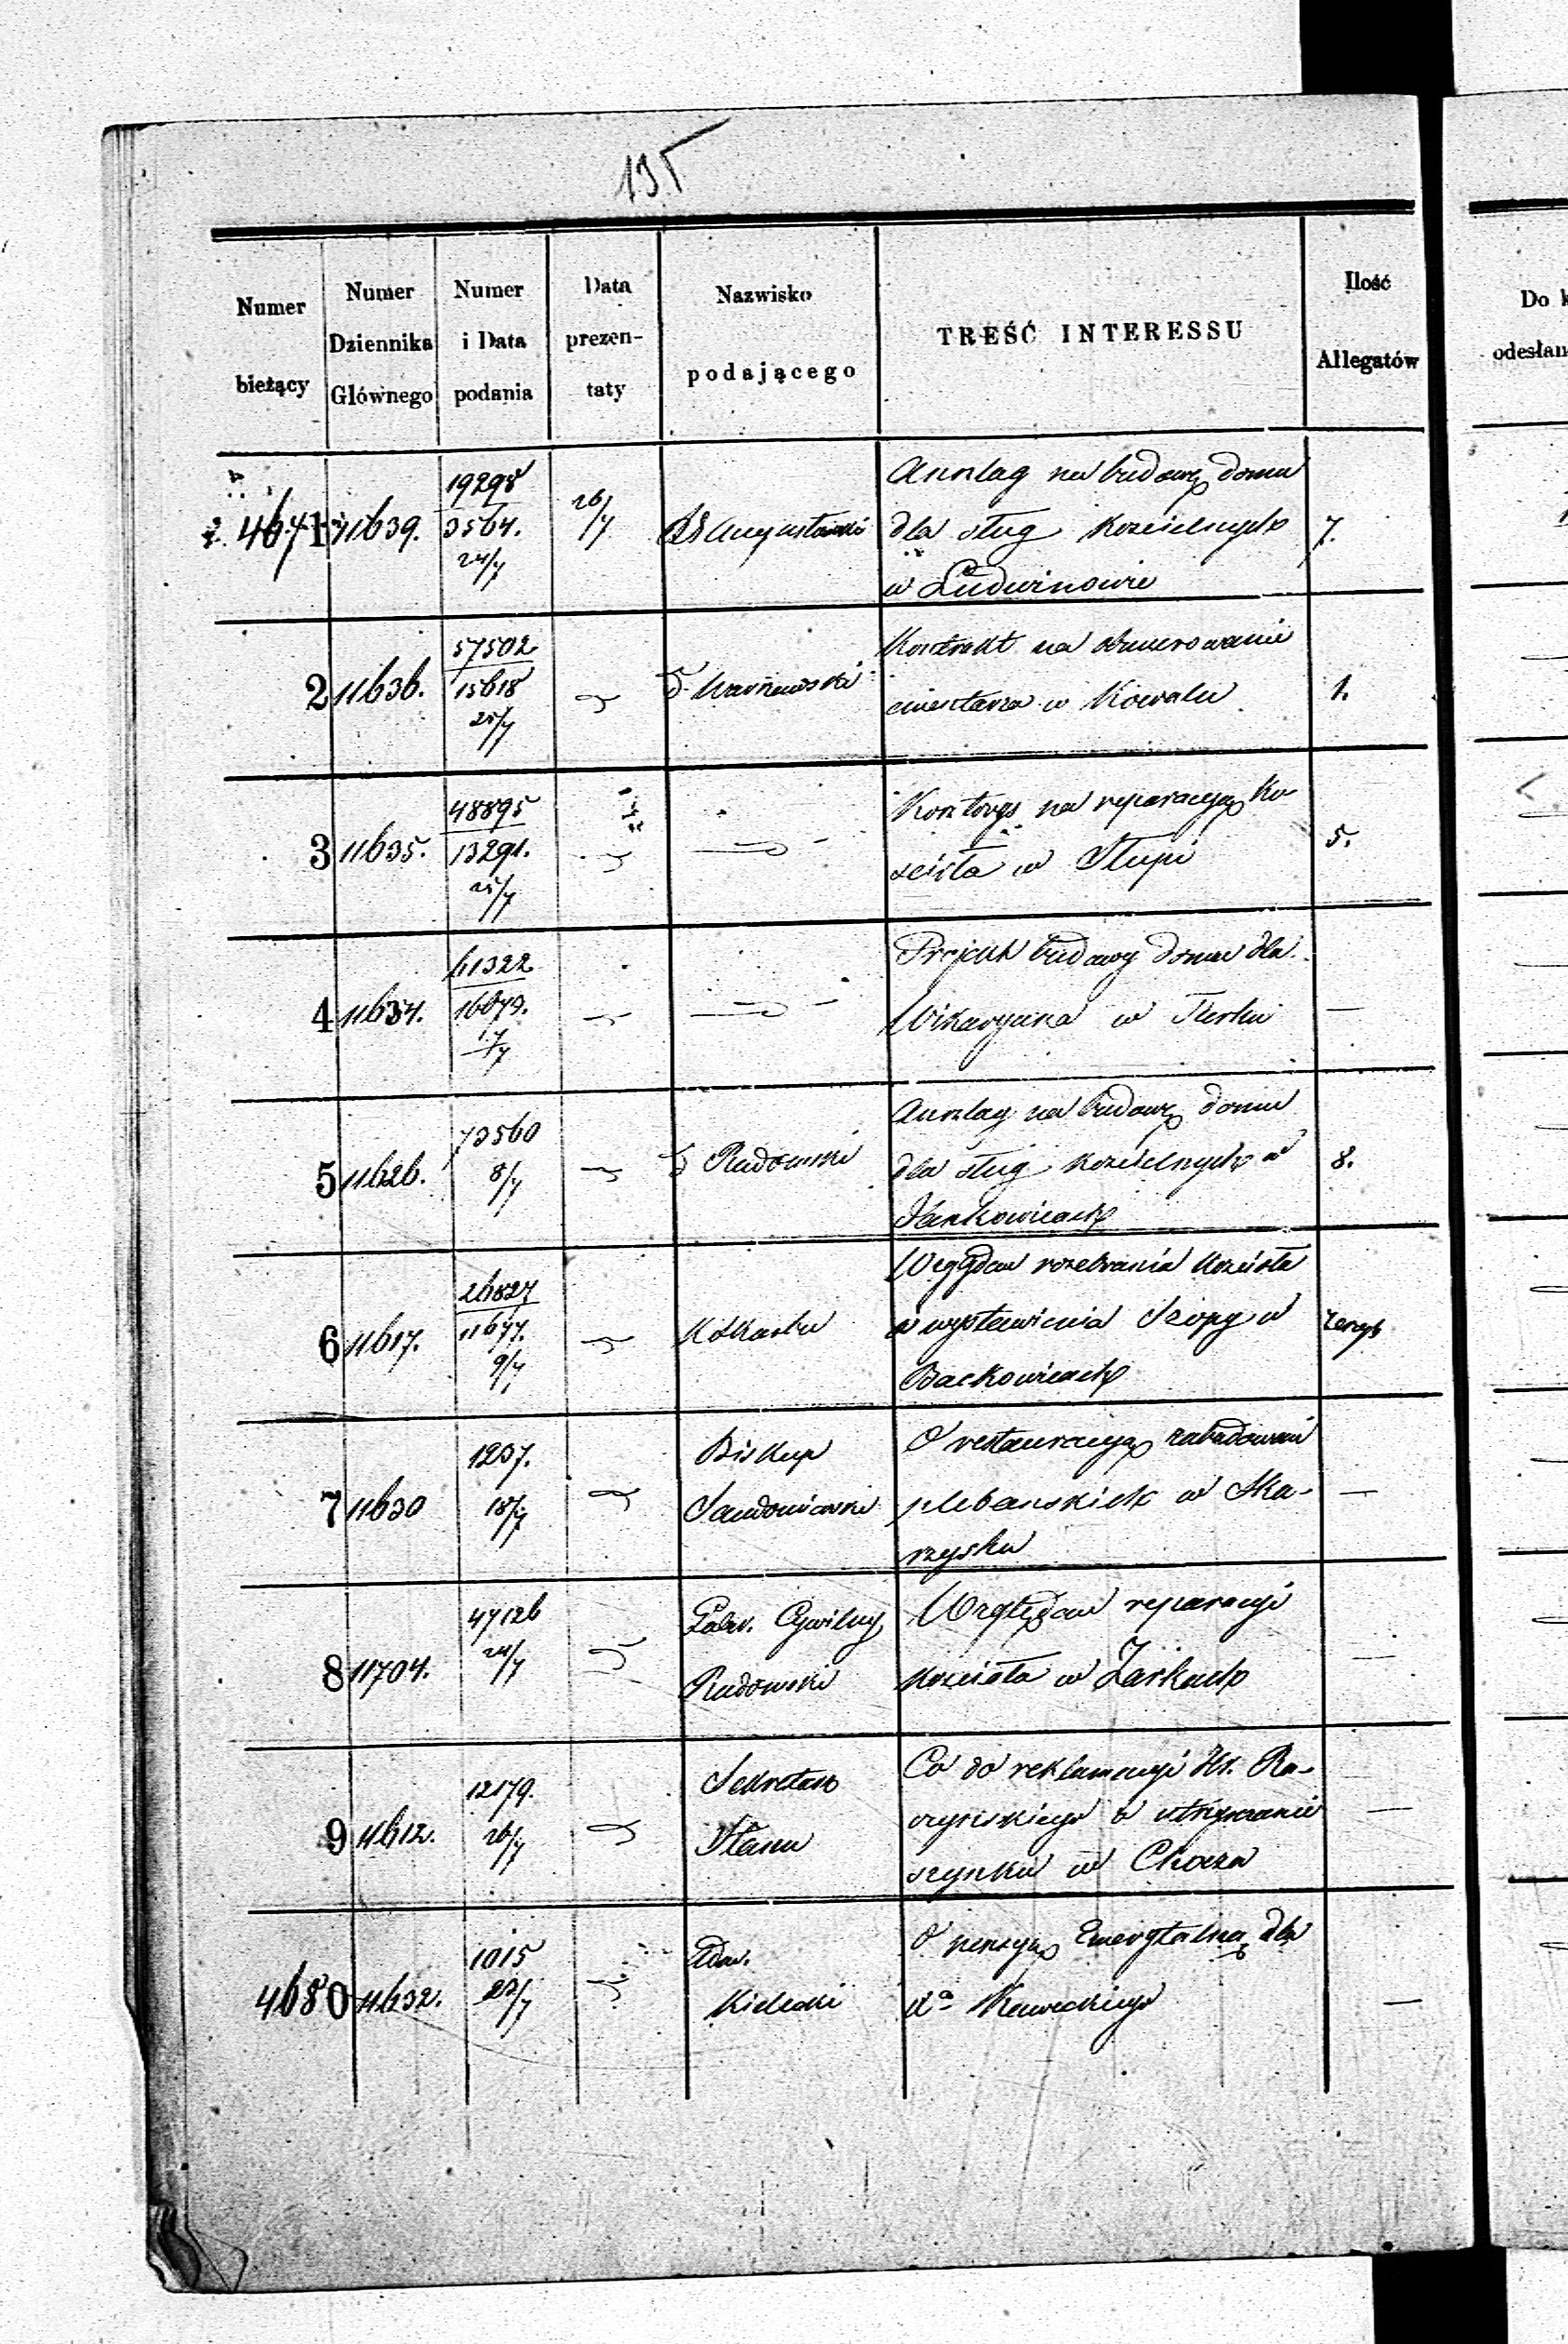 195
Numer bieżący
Numer Dziennika Głównego
Numer i Data podania
Data prezen-taty
Nazwisko podającego
TREŚĆ INTERESSU
Ilość Allegatów
Do
odesłan
4671
11639.
19298
3564.
24/7
26/7
Augustowski
Anszlag na budowę domu
dla sług kościelnych
w Ludwinowie
7.
2
11636.
57502
15618
25/7
Warszawski
Kontrakt na obmurowanie
cmentarza w Kowalu
1.
3
11635.
48895
13291.
25/7
Kosztorys na reparacyą ko-
ścioła w Słupi
5.
4
11634.
61322
16073.
17/7
Projekt budowy domu dla
Wikaryusza w Turku
—
5
11626.
73560
8/7
Radomski
Anszlag na budowę domu
dla sług kościelnych w
Jankowicach
8.
6
11617.
26827
11677.
9/7
Względem rozebrania kościoła
a wystawienia Szopy w
Backowicach
7
11630
1237.
18/7
Biskup
Sandomierski
O restauracyą zabudowań
plebańskich w Ska-
rzysku
—
8
11704.
47126
24/7
Gub. Cywilny
Radomski
Względem reparacyi
kościoła w Żarkach
—
9
11612.
12179.
26/7
Sekretarz
Stanu
Co do reklamacyi Hr. Ra-
czyńskiego o utrzymanie
szynku w
—
4680
11632.
1015
23/7
Adm.
Kielecki
O pensyą Emerytalną dla
Xa Kaweckiego
—